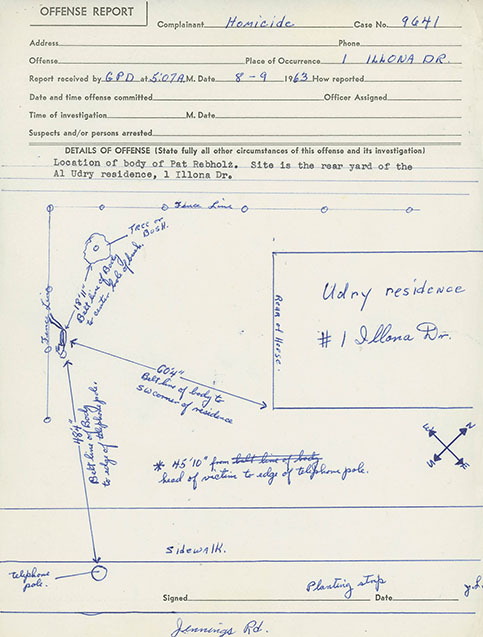 OFFENSE REPORT
Complainant Homicide Case No. 9641
Address Phone
Offense Place of Occurrence 1 ILLONA DR.
Report received by GPD at 5:07A.M. Date 8-9 1963 How reported
Date and time offense committed Officer Assigned
Time of investigation M. Date
Suspects and/or persons arrested
DETAILS OF OFFENSE (State fully all other circumstances of this offense and its investigation)
Location of body of Pat Rebholz. Site is the rear yard of the
Al Udry residence, 1 Illona Dr.
Fence Line
Tree or
Bush.
18'11"
Belt line of Body
to center of bush.
Fence Line
Rear of House.
Udry residence
# 1 Illona Dr.
60'4"
Belt line of body to
SW corner of residence
48'4"
Belt line of Body
to edge of telephone pole.
* 45'10" from belt line of body
head of victim to edge of telephone pole.
N
E
Sidewalk.
telephone
pole.
Planting strip
Signed Date
Jennings Rd.